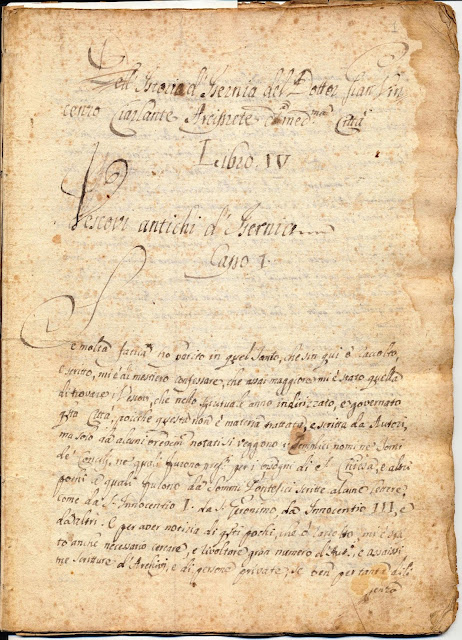 Dell'Istoria d'Isernia del Dottor Gian Vin
cenzo Ciarlante Arciprete della med.ma Città
Libro IV
Vescovi antichi d'Isernia
Capo I.
Se molta fatica ho patito in quel tanto, che sin qui ò raccolto,
e scritto, mi è di mestiero confessare, che assai maggiore mi è stato quella
di trovare i Vescovi, che nello spirituale anno indirizzato, e governato
questa Città, poiche questa non è materia trattata, e scritta da Autori,
ma solo da alcuni notati si veggono i semplici nomi ne' Tomi
de' Concilj, ne quali furono per i bisogni di Chiesa, e altri
a quali furono da Sommi Pontefici scritte alcune lettere,
come da S. Innocentio I. da S. Geronimo, da Innocentio III, e
da altri. E per aver notizia di questi pochi, che ò mi è sta
to anche necessario cercare, e rivoltare gran numero d'Autori, e
me scritture d'Archivi, e di persone private, se ben per tante dili
genze